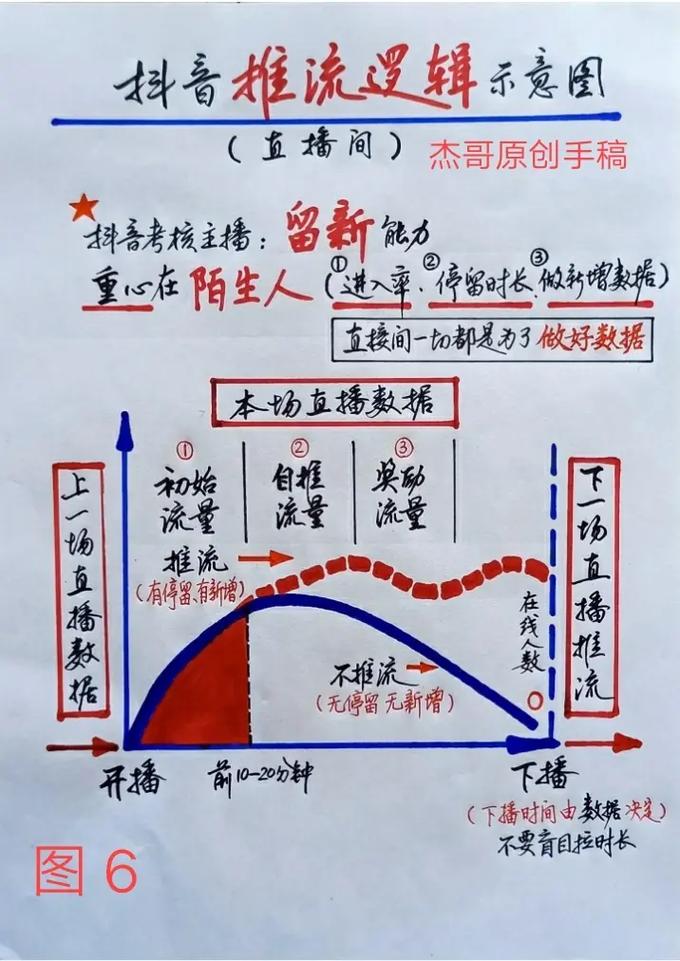 抖音推流逻辑示意图
(直播间)
杰哥原创手稿
抖音考核主播：留新能力
重心在陌生人(①进入率、②停留时长、③做新增数据)
直接间一切都是为了做好数据
本场直播数据
上一场直播数据
① 初始流量
② 自推流量
③ 奖励流量
下一场直播推流
推流
(有停留、有新增)
在线人数
不推流
(无停留 无新增)
0
开播
前10-20分钟
下播
(下播时间由数据决定)
不要盲目拉时长
图 6